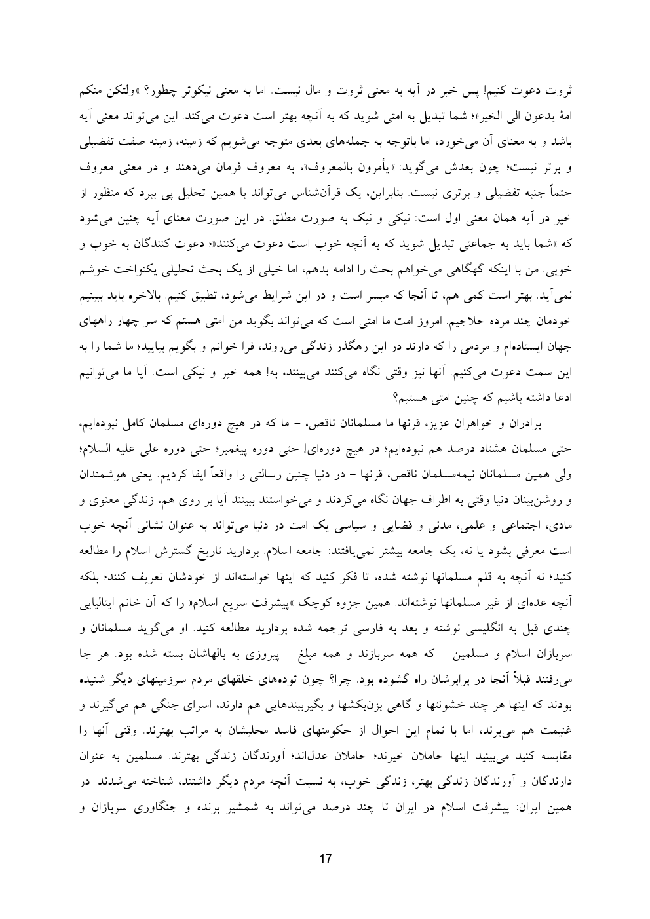 ثروت دعوت کنیم! پس خیر در آیه به معنی ثروت و مال نیست. اما به معنی نیکوتر چطور؟ «ولتکن منکم
امة یدعون الی الخیر»؛ شما تبدیل به امتی شوید که به آنچه بهتر است دعوت می‌کند. این می‌تواند معنی آیه
باشد و به معنای آن می‌خورد، اما باتوجه به جمله‌های بعدی متوجه می‌شویم که زمینه، زمینه صفت تفضیلی
و برتر نیست؛ چون بعدش می‌گوید: «یأمرون بالمعروف»، به معروف فرمان می‌دهند و در معنی معروف
حتماً جنبه تفضیلی و برتری نیست. بنابراین، یک قرآن‌شناس می‌تواند با همین تحلیل پی ببرد که منظور از
خیر در آیه همان معنی اول است: نیکی و نیک به صورت مطلق. در این صورت معنای آیه چنین می‌شود
که «شما باید به جماعتی تبدیل شوید که به آنچه خوب است دعوت می‌کنند»؛ دعوت کنندگان به خوب و
خوبی. من با اینکه گهگاهی می‌خواهم بحث را ادامه بدهم، اما خیلی از یک بحث تحلیلی یکنواخت خوشم
نمی‌آید. بهتر است کمی هم، تا آنجا که میسر است و در این شرایط می‌شود، تطبیق کنیم. بالاخره باید ببینیم
خودمان چند مرده حلاجیم. امروز امت ما امتی است که می‌تواند بگوید من امتی هستم که سر چهار راههای
جهان ایستاده‌ام و مردمی را که دارند در این رهگذر زندگی می‌روند، فرا خوانم و بگویم بیایید؛ ما شما را به
این سمت دعوت می‌کنیم. آنها نیز وقتی نگاه می‌کنند می‌بینند، به! همه خیر و نیکی است. آیا ما می‌توانیم
ادعا داشته باشیم که چنین امتی هستیم؟
برادران و خواهران عزیز، قرنها ما مسلمانان ناقص، - ما که در هیچ دوره‌ای مسلمان کامل نبوده‌ایم،
حتی مسلمان هشتاد درصد هم نبوده‌ایم؛ در هیچ دوره‌ای! حتی دوره پیغمبر؛ حتی دوره علی علیه السلام؛
ولی همین مسلمانان نیمه‌مسلمان ناقص، قرنها - در دنیا چنین رسالتی را واقعاً ایفا کردیم. یعنی هوشمندان
و روشن‌بینان دنیا وقتی به اطراف جهان نگاه می‌کردند و می‌خواستند ببینند آیا بر روی هم، زندگی معنوی و
مادی، اجتماعی و علمی، مدنی و قضایی و سیاسی یک امت در دنیا می‌تواند به عنوان نشانی آنچه خوب
است معرفی بشود یا نه، یک جامعه بیشتر نمی‌یافتند: جامعه اسلام. بردارید تاریخ گسترش اسلام را مطالعه
کنید؛ نه آنچه به قلم مسلمانها نوشته شده، تا فکر کنید که اینها خواسته‌اند از خودشان تعریف کنند؛ بلکه
آنچه عده‌ای از غیر مسلمانها نوشته‌اند. همین جزوه کوچک «پیشرفت سریع اسلام» را که آن خانم ایتالیایی
چندی قبل به انگلیسی نوشته و بعد به فارسی ترجمه شده بردارید مطالعه کنید. او می‌گوید مسلمانان و
سربازان اسلام و مسلمین - که همه سربازند و همه مبلغ - پیروزی به بالهاشان بسته شده بود. هر جا
می‌رفتند قبلاً آنجا در برابرشان راه گشوده بود. چرا؟ چون توده‌های خلقهای مردم سرزمینهای دیگر شنیده
بودند که اینها هر چند خشونتها و گاهی بزن‌بکشها و بگیرببندهایی هم دارند، اسرای جنگی هم می‌گیرند و
غنیمت هم می‌برند، اما با تمام این احوال از حکومتهای فاسد محلیشان به مراتب بهترند. وقتی آنها را
مقایسه کنید می‌بینید اینها حاملان خیرند؛ حاملان عدل‌اند؛ آورندگان زندگی بهترند. مسلمین به عنوان
دارندگان و آورندگان زندگی بهتر، زندگی خوب، به نسبت آنچه مردم دیگر داشتند، شناخته می‌شدند. در
همین ایران: پیشرفت اسلام در ایران تا چند درصد می‌تواند به شمشیر برنده و جنگاوری سربازان و
17